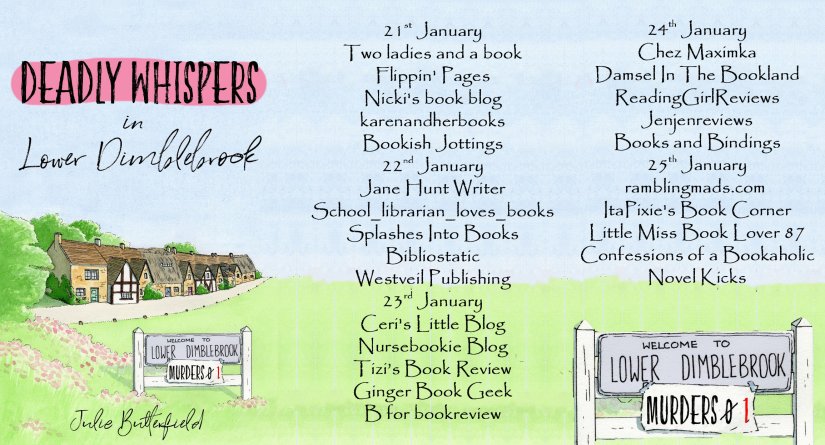 DEADLY WHISPERS
in
Lower Dimblebrook
WELCOME TO
LOWER DIMBLEBROOK
MURDERS 0 1
Julie Butterfield
21st January
Two ladies and a book
Flippin' Pages
Nicki's book blog
karenandherbooks
Bookish Jottings
22nd January
Jane Hunt Writer
School_librarian_loves_books
Splashes Into Books
Bibliostatic
Westveil Publishing
23rd January
Ceri's Little Blog
Nursebookie Blog
Tizi's Book Review
Ginger Book Geek
B for bookreview
24th January
Chez Maximka
Damsel In The Bookland
ReadingGirlReviews
Jenjenreviews
Books and Bindings
25th January
ramblingmads.com
ItaPixie's Book Corner
Little Miss Book Lover 87
Confessions of a Bookaholic
Novel Kicks
WELCOME TO
LOWER DIMBLEBROOK
MURDERS 0 1